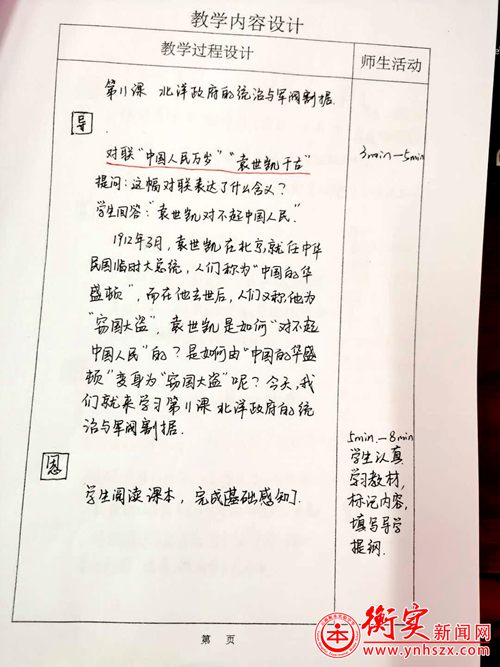 教学内容设计
教学过程设计
师生活动
第11课 北洋政府的统治与军阀割据.
导
对联“中国人民万岁”“袁世凯千古”
3min—5min
提问:这幅对联表达了什么含义?
学生回答:“袁世凯对不起中国人民.”
1912年3月,袁世凯在北京就任中华
民国临时大总统,人们称为“中国的华
盛顿”,而在他去世后,人们又称他为
“窃国大盗”,袁世凯是如何“对不起
中国人民”的?是如何由“中国的华盛
顿”变身为“窃国大盗”呢?今天,我
们就来学习第11课 北洋政府的统
治与军阀割据.
思
学生阅读课本,完成[基础感知].
5min—8min
学生认真
学习教材,
标记内容,
填写导学
提纲.
第 页
衡实新闻网
www.ynhszx.com